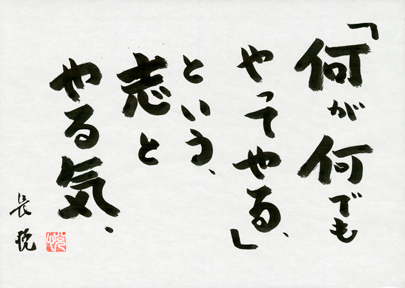 「何が何でも
やってやる」、
という、
志と
やる気、
長晩